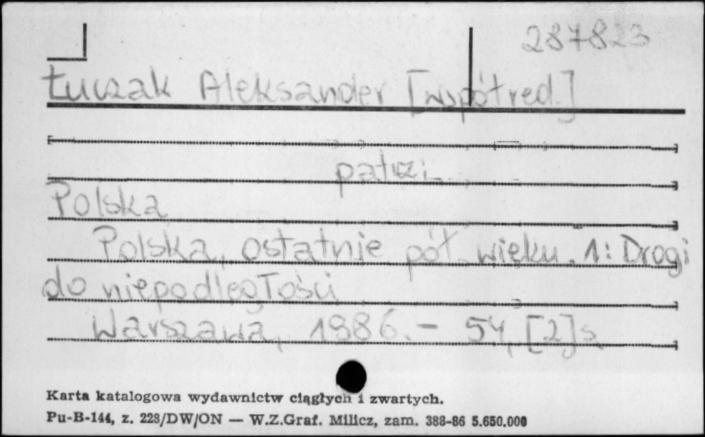 287823
Łuczak Aleksander [współred.]
patrzi
Polska
Polska, ostatnie pół wieku. 1: Drogi
do niepodległości
Warszawa, 1986. - 54, [2] s.
Karta katalogowa wydawnictw ciągłych i zwartych.
Pu-B-144, z. 228/DW/ON — W.Z.Graf. Milicz, zam. 388-86 5.650.000